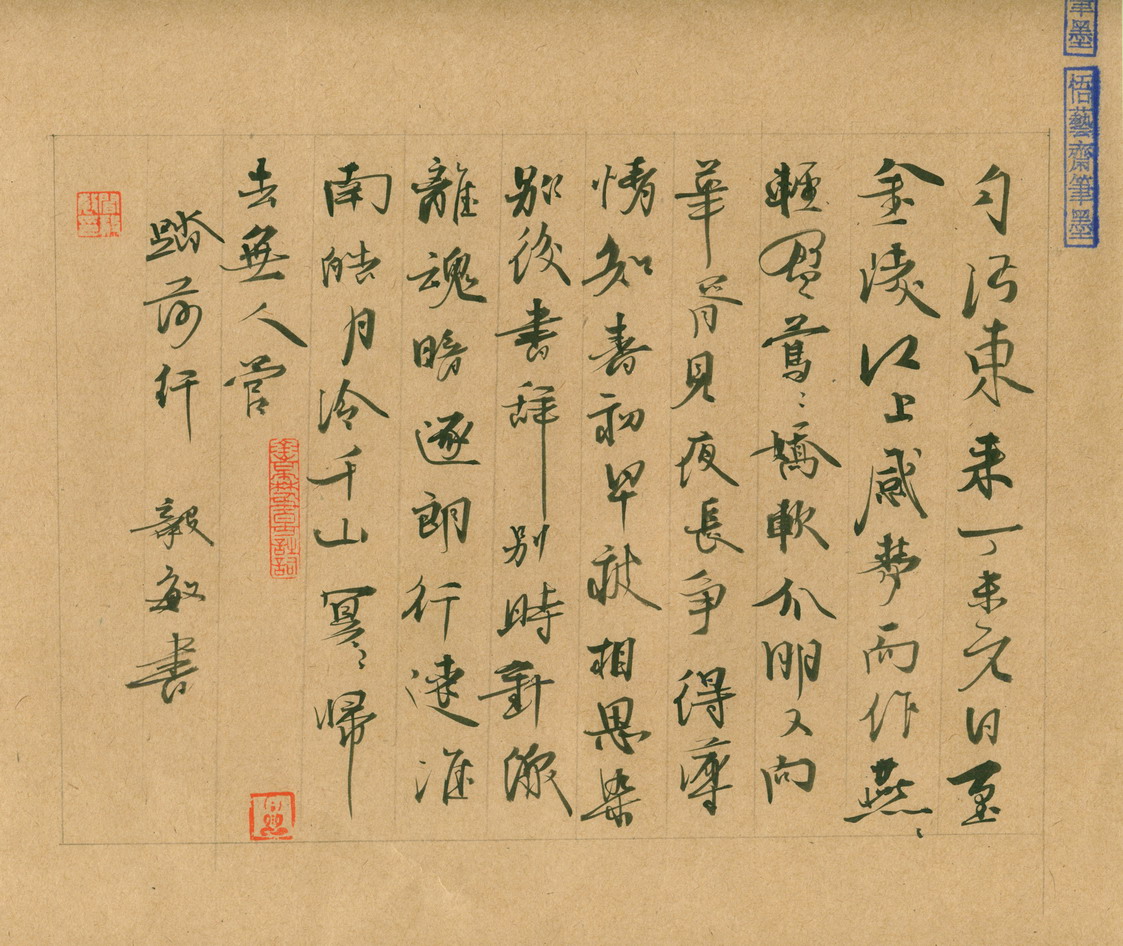 自沔東來丁未元日至
金陵江上感夢而作燕〻
輕盈鶯〻嬌軟分明又向
華胥見夜長爭得薄
情知春初早被相思染
別後書辭別時針線
離魂暗逐郎行遠淮
南皓月冷千山冥〻歸
去無人管
踏莎行 毅敏書
筆墨
悟藝齋筆墨